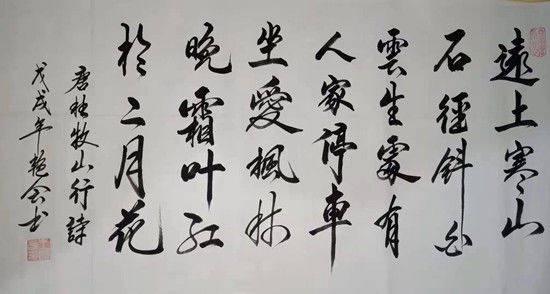 遠上寒山
石徑斜白
雲生處有
人家停車
坐愛楓林
晚霜叶红
於二月花
唐杜牧山行詩
戊戌年艳会书